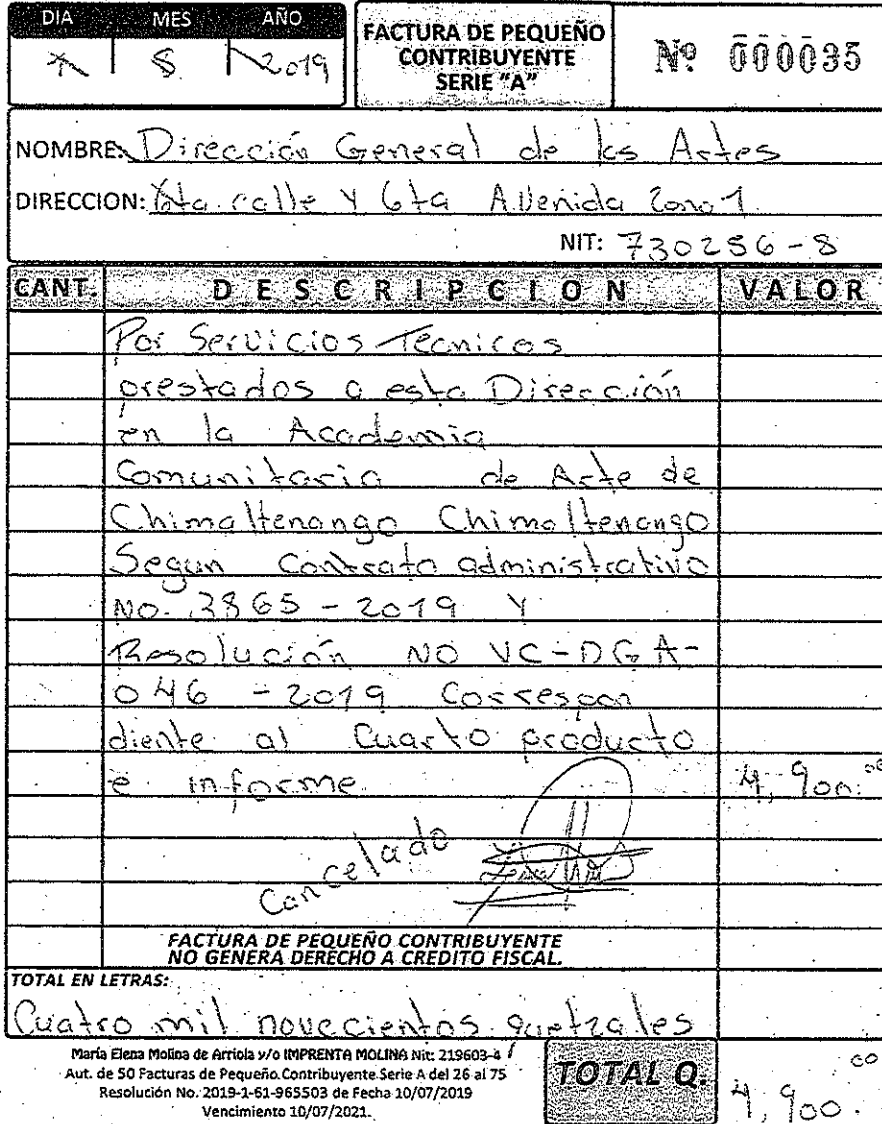 DIA MES AÑO
8 2019
FACTURA DE PEQUEÑO
CONTRIBUYENTE
SERIE "A"
Nº 000035
NOMBRE: Dirección General de las Artes
DIRECCION: calle y 6ta Avenida Zona 1
NIT:
CANT. DESCRIPCION VALOR
Por Servicios Tecnicos
prestados a esta Dirección
en la Academia
Comunitaria de Arte de
Chimaltenango Chimaltenango
Segun Contrato administrativo
No. 3865-2019 Y
Resolución NO VC-DGA-
046-2019 Correspon
diente al Cuarto producto
e informe 4,900.00
Cancelado
FACTURA DE PEQUEÑO CONTRIBUYENTE
NO GENERA DERECHO A CREDITO FISCAL.
TOTAL EN LETRAS:
Cuatro mil novecientos quetzales
María Elena Molina de Arriola y/o IMPRENTA MOLINA Nit: 219603-4
Aut. de 50 Facturas de Pequeño Contribuyente Serie A del 26 al 75
Resolución No. 2019-1-61-965503 de Fecha 10/07/2019
Vencimiento 10/07/2021.
TOTAL Q. 4,900.00